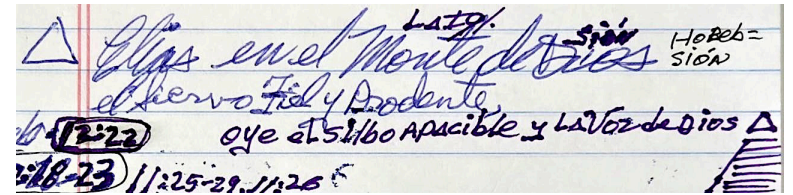 La Igl.
Elias en el Monte de Dios Sión Horeb=
Sión
el siervo Fiel y Prodente,
12:22 oye el silbo Apacible y La Voz de Dios
18-23 11:25-29. 11:26